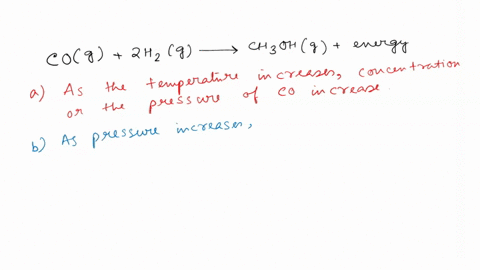 CO(g) + 2H₂(g) ⟶ CH₃OH(g) + energy
a) As the temperature increases, concentration
or the pressure of CO increase.
b) As pressure increases,